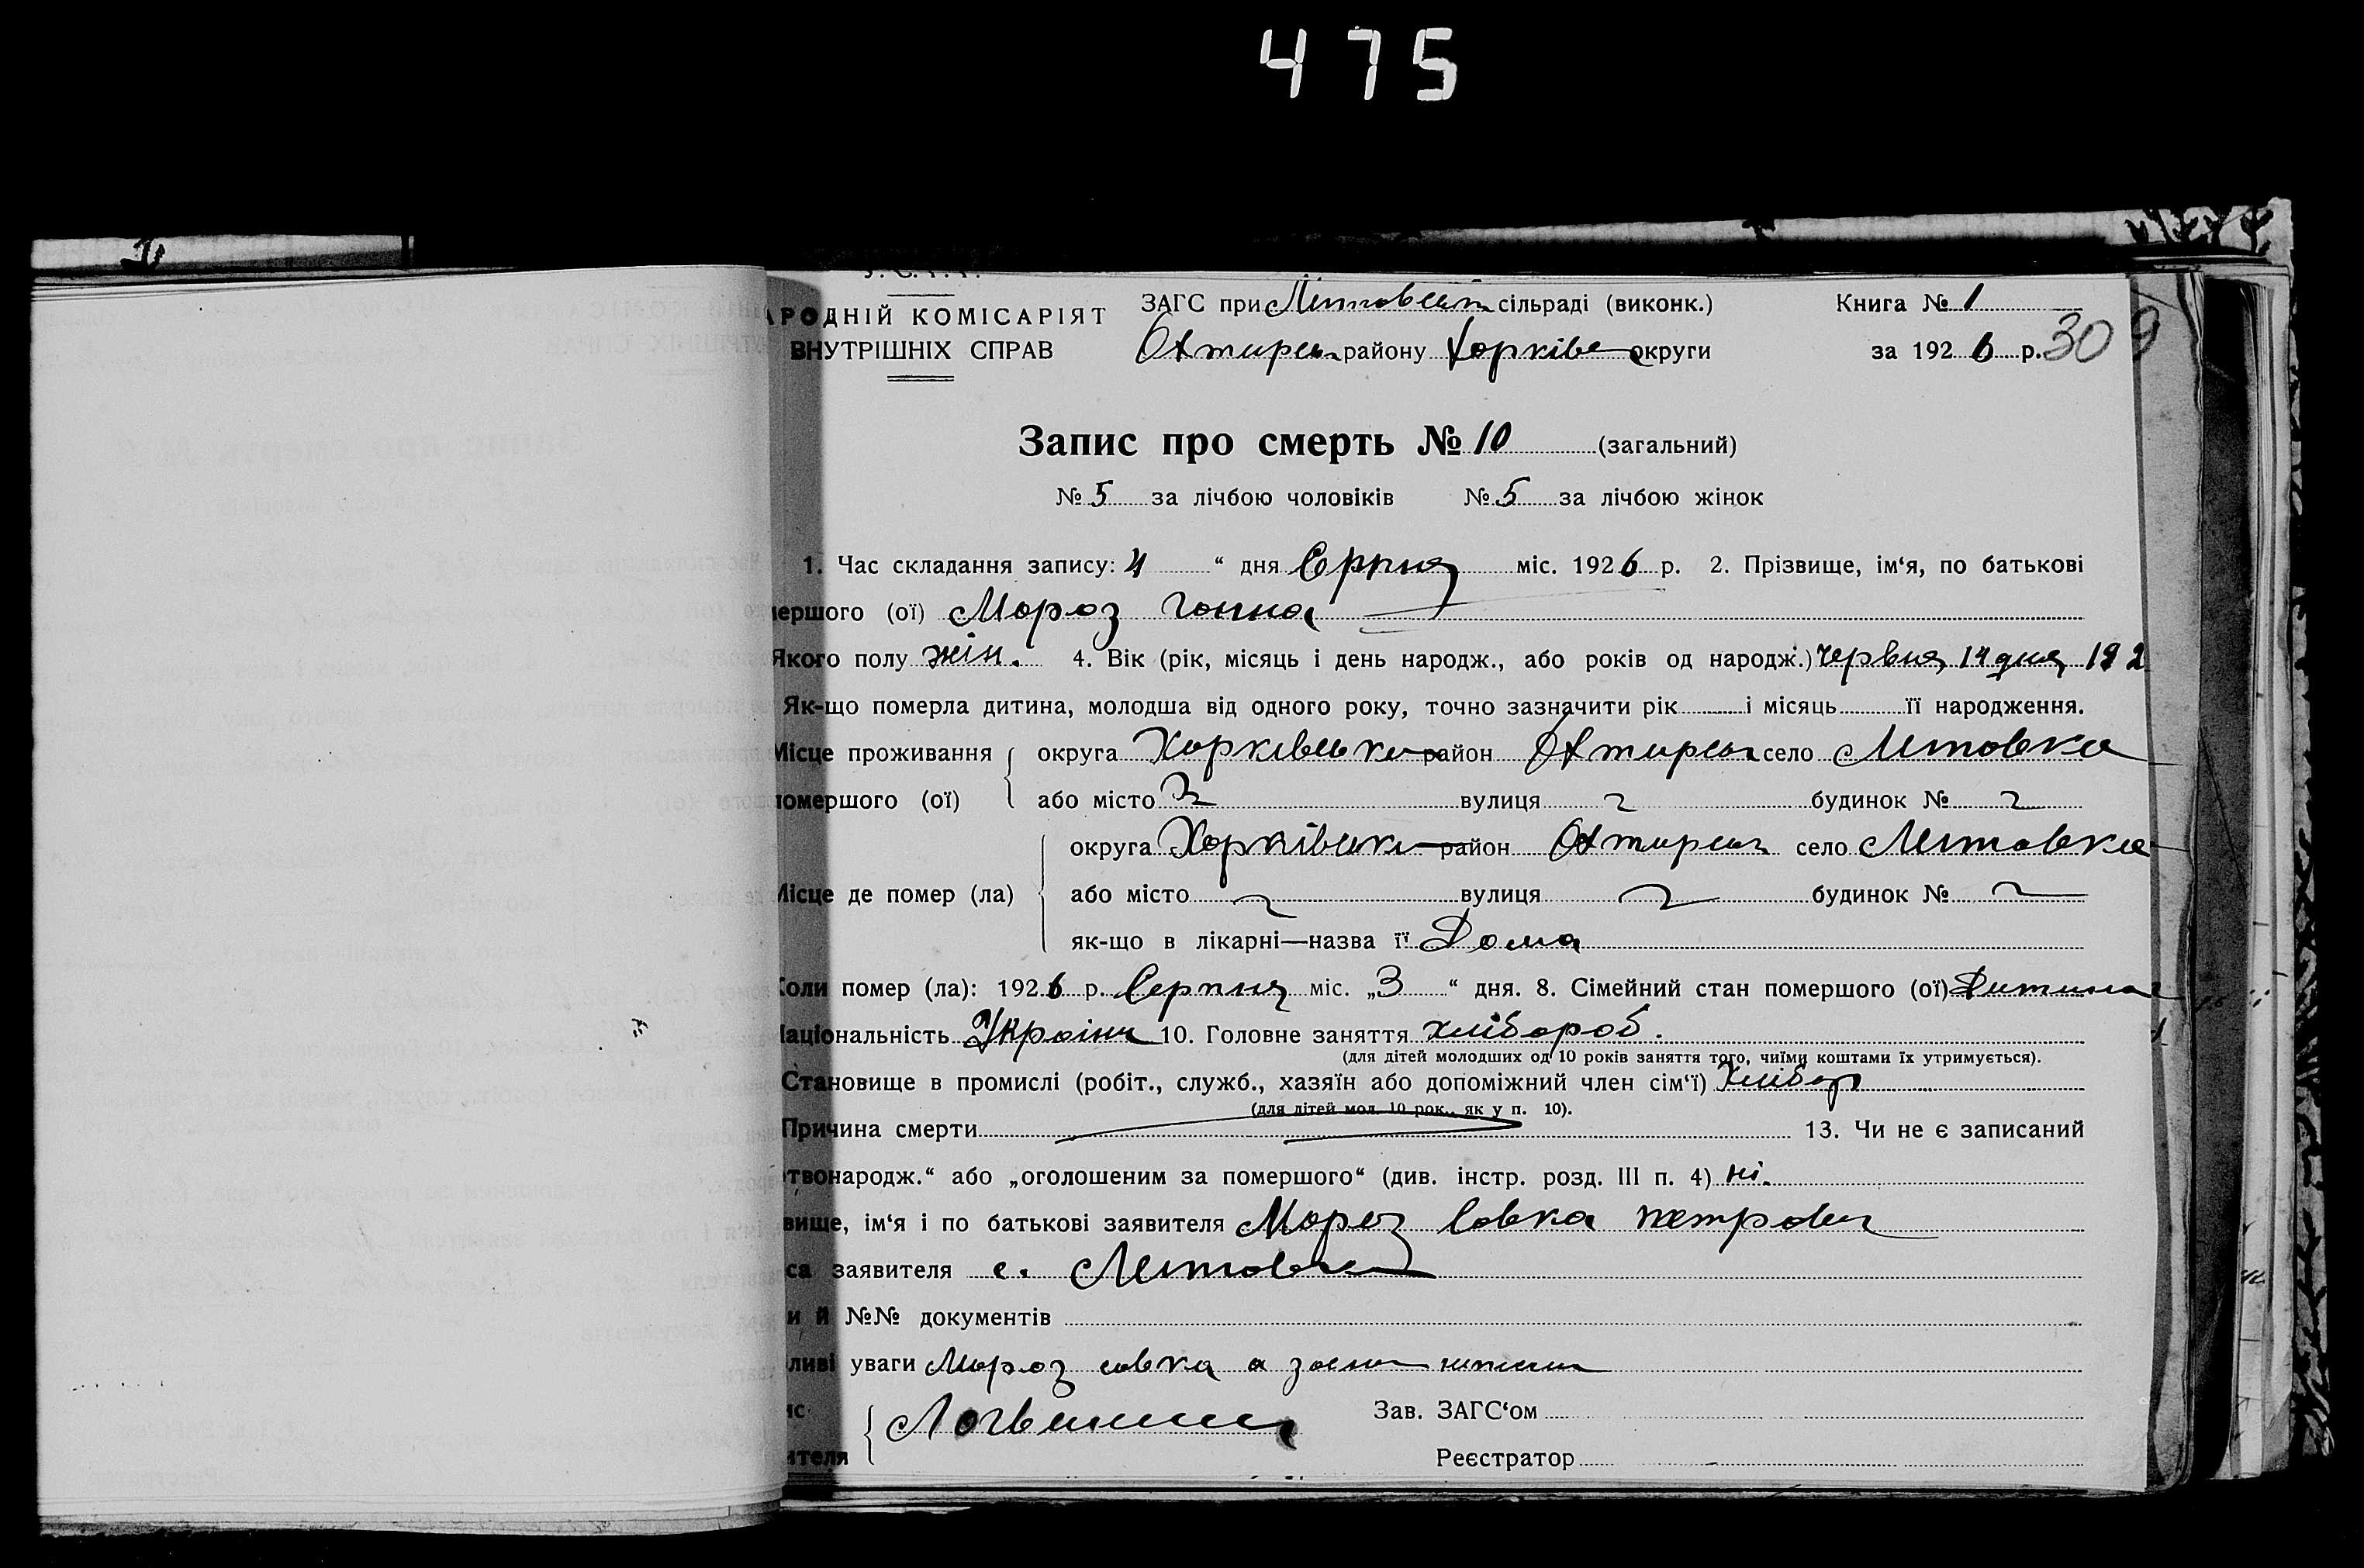 475
НАРОДНІЙ КОМІСАРІЯТ
ВНУТРІШНІХ СПРАВ
ЗАГС при сільраді (виконк.)
Охтирськ району Харків округи
Книга № 1
за 1926 р. 309
Запис про смерть № 10 (загальний)
№ 5 за лічбою чоловіків № 5 за лічбою жінок
1. Час складання запису: 4 “ дня Серпня міс. 1926 р. 2. Прізвище, ім‘я, по батькові
мершого (ої) Мороз Ганна
Якого полу жін. 4. Вік (рік, місяць і день народж., або років од народж.) Червня 14 дня 192
Як-що померла дитина, молодша від одного року, точно зазначити рік і місяць її народження.
Місце проживання округа Харківська район Охтирськ село Литовка
помершого (ої) або місто вулиця будинок №
округа Харківськ район Охтирськ село Литовка
Місце де помер (ла) або місто вулиця будинок №
як-що в лікарні—назва її Дома
Коли помер (ла): 1926 р. Серпня міс. „3 “ дня. 8. Сімейний стан помершого (ої) Дитина
Національність Україн 10. Головне заняття хлібороб.
(для дітей молодших од 10 років заняття того, чиїми коштами їх утримується).
Становище в промислі (робіт., служб., хазяїн або допоміжний член сім‘ї) Хлібор
(для дітей мол. 10 рок., як у п. 10).
Причина смерти 13. Чи не є записаний
твонародж.“ або „оголошеним за помершого“ (див. інстр. розд. III п. 4) ні.
вище, ім‘я і по батькові заявителя Мороз Савка Петрович
са заявителя с. Литовка
и й №№ документів
ливі уваги Мороз Савка а
ис Зав. ЗАГС‘ом
ителя Реєстратор